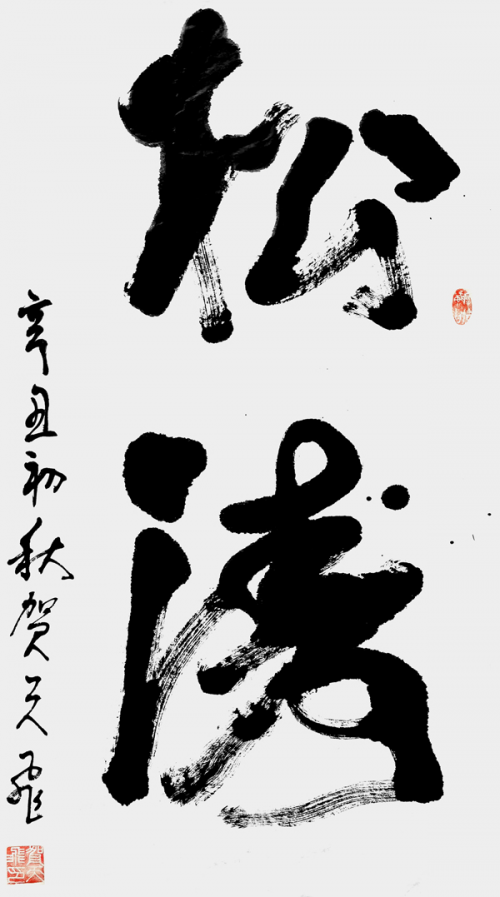 松濤
辛丑初秋贺天飛